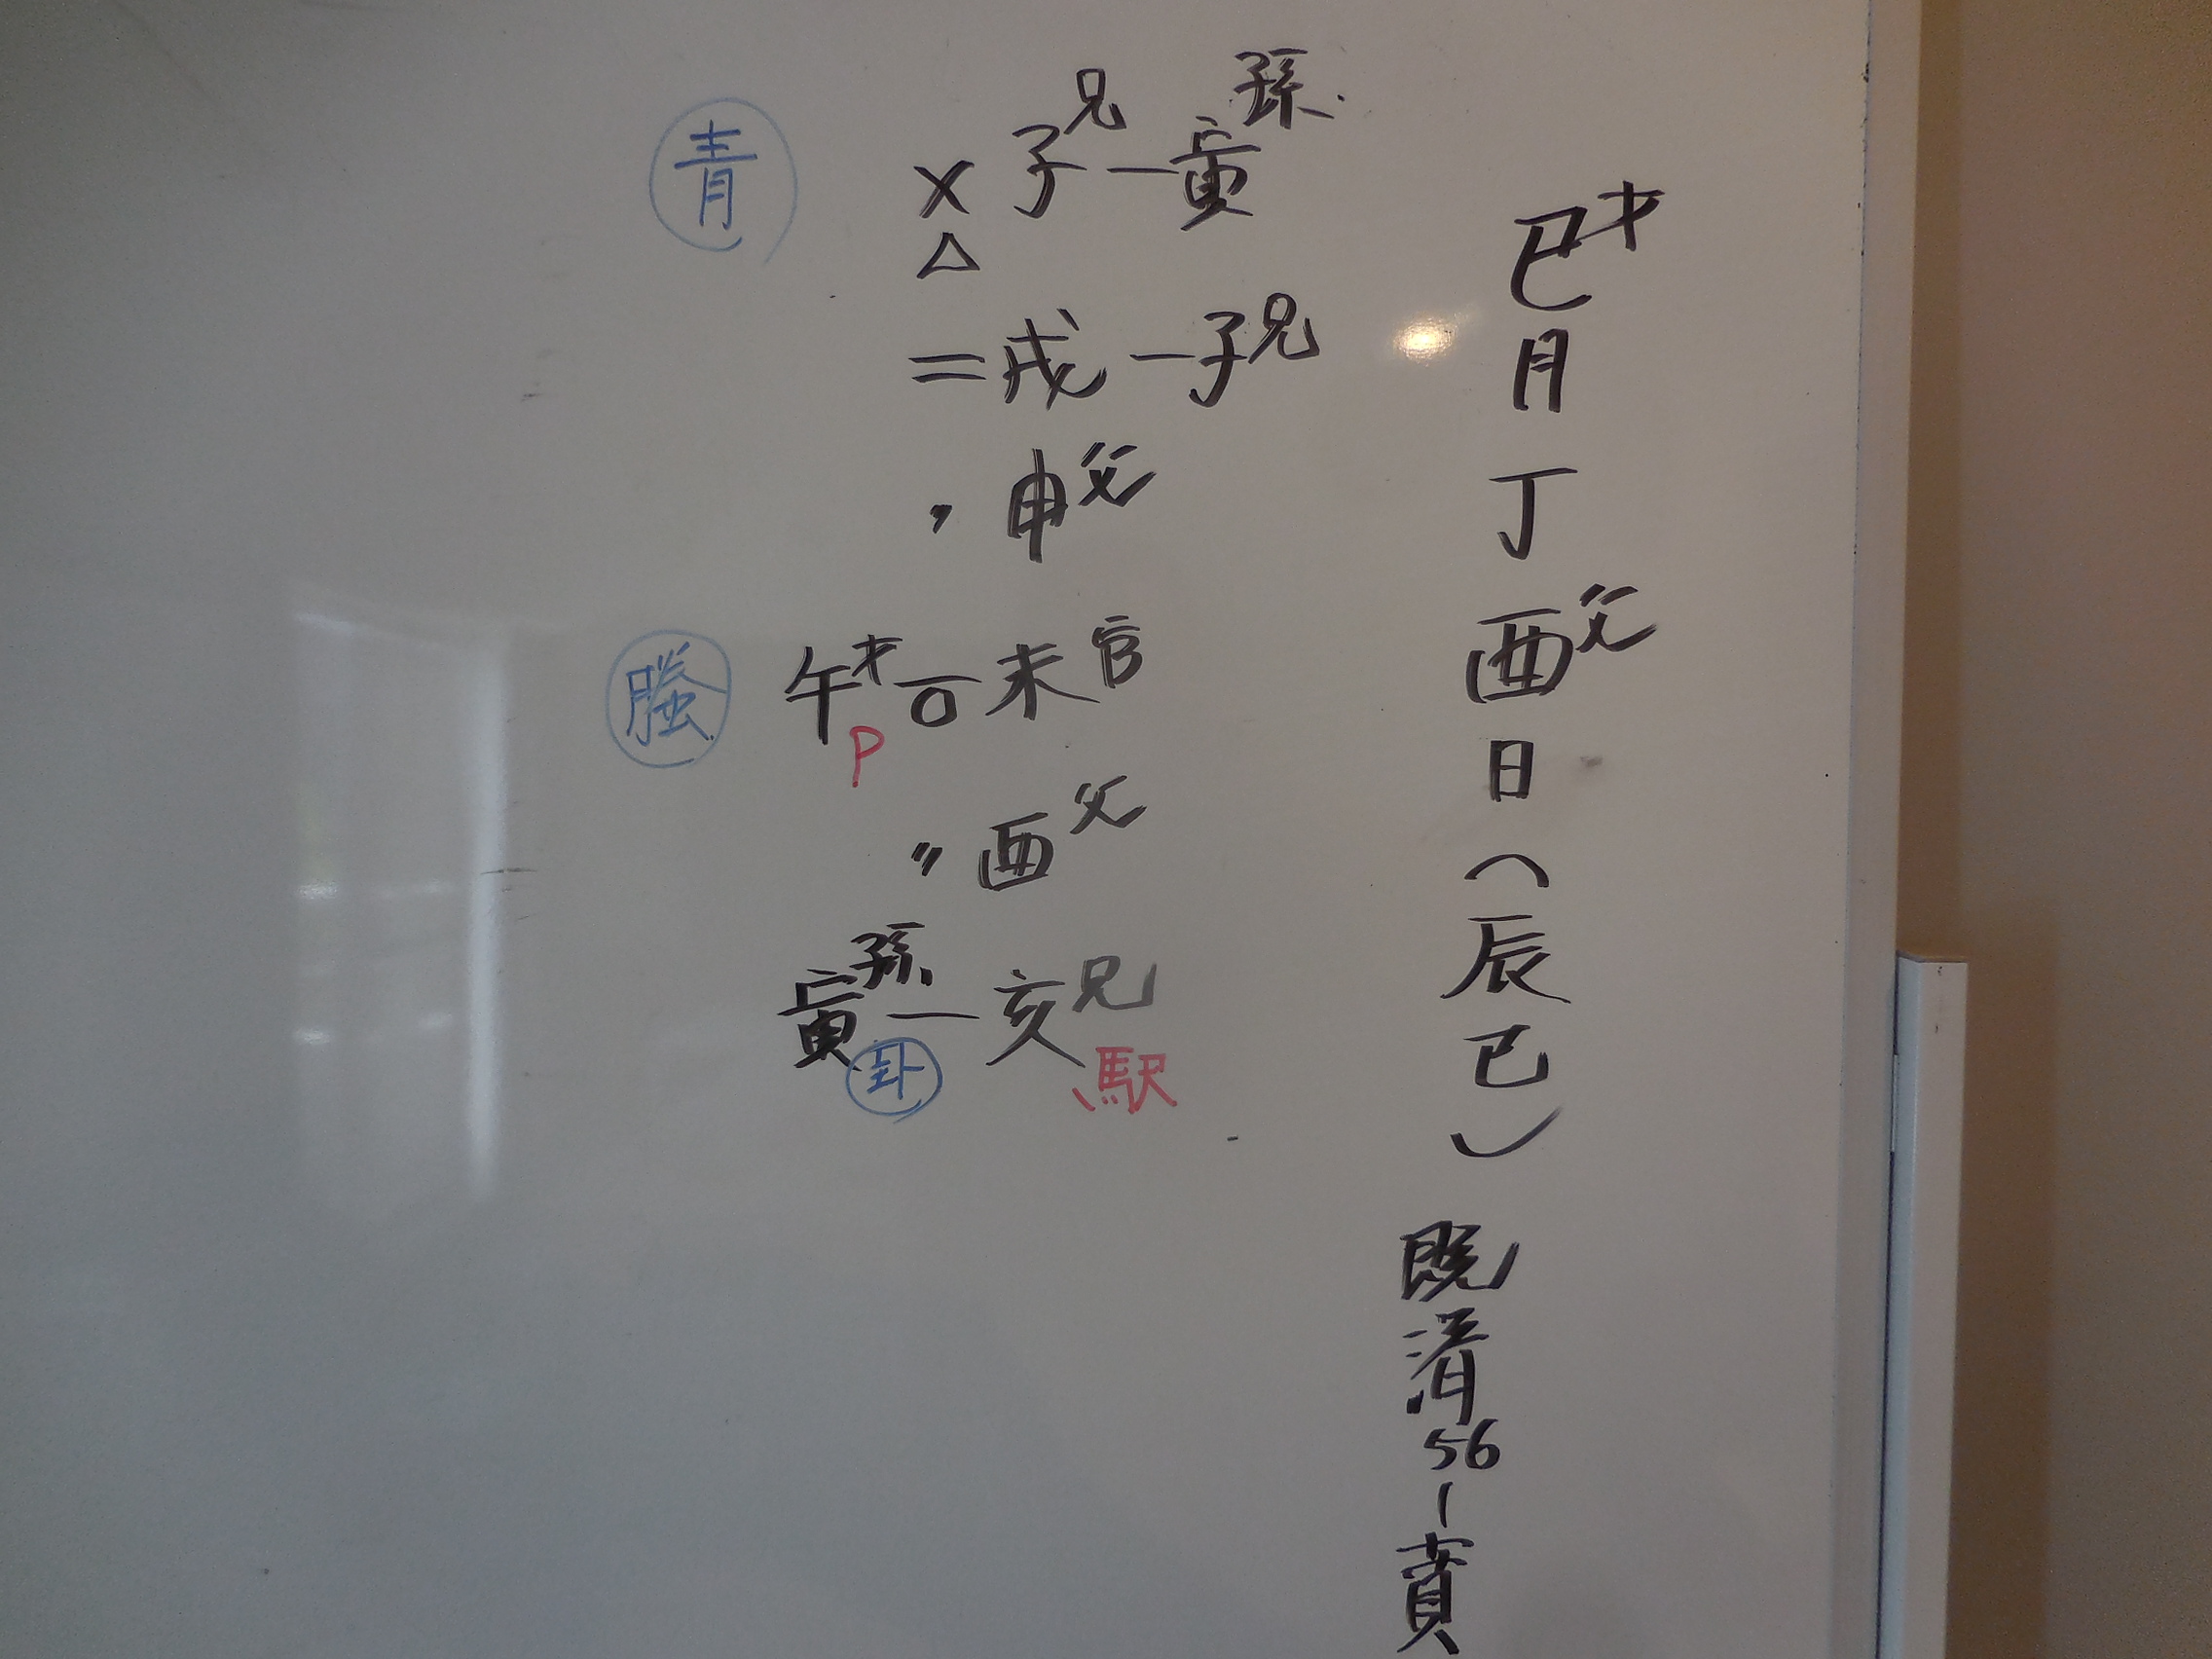 巳才月丁酉父日(辰巳)既済56-賁
青 × 子兄 - 寅孫
△
= 戌 - 子兄
〃 申父
螣 午才 P 〇 未官
〃 酉父
寅孫 卦 - 亥兄 駅